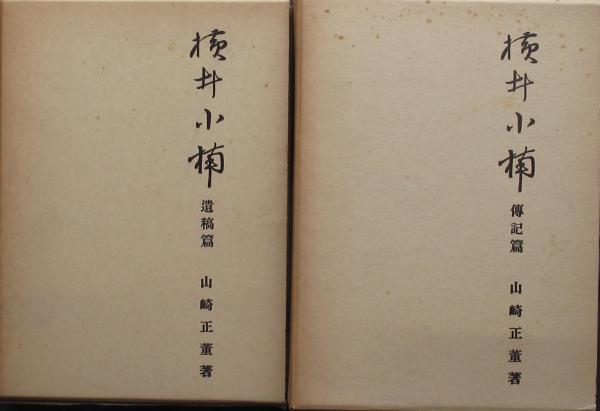 横井小楠
傳記篇 山崎正董著
横井小楠
遺稿篇 山崎正董著